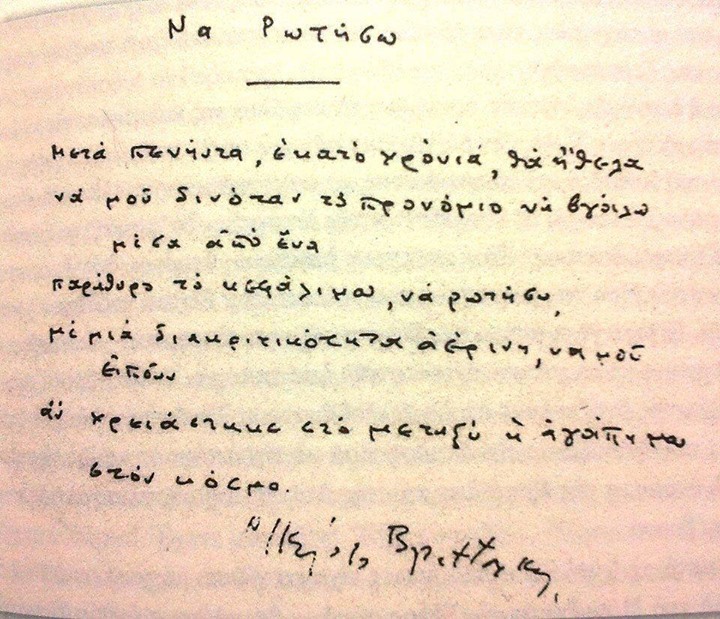 Να Ρωτήσω
μετά πενήντα, ἑκατό χρόνια, θά ἤθελα
νά μοῦ δινόταν τό προνόμιο νά βγάλω
μέσα ἀπό ἕνα
παράθυρο τό κεφάλι μου, νά ρωτήσω,
μέ μιά διακριτικότητα ἀέρινη, νά μοῦ
εἰποῦν
ἄν χρειάστηκε στό μεταξύ ἡ ἀγάπη μου
στόν κόσμο
Νικηφόρος Βρεττάκος